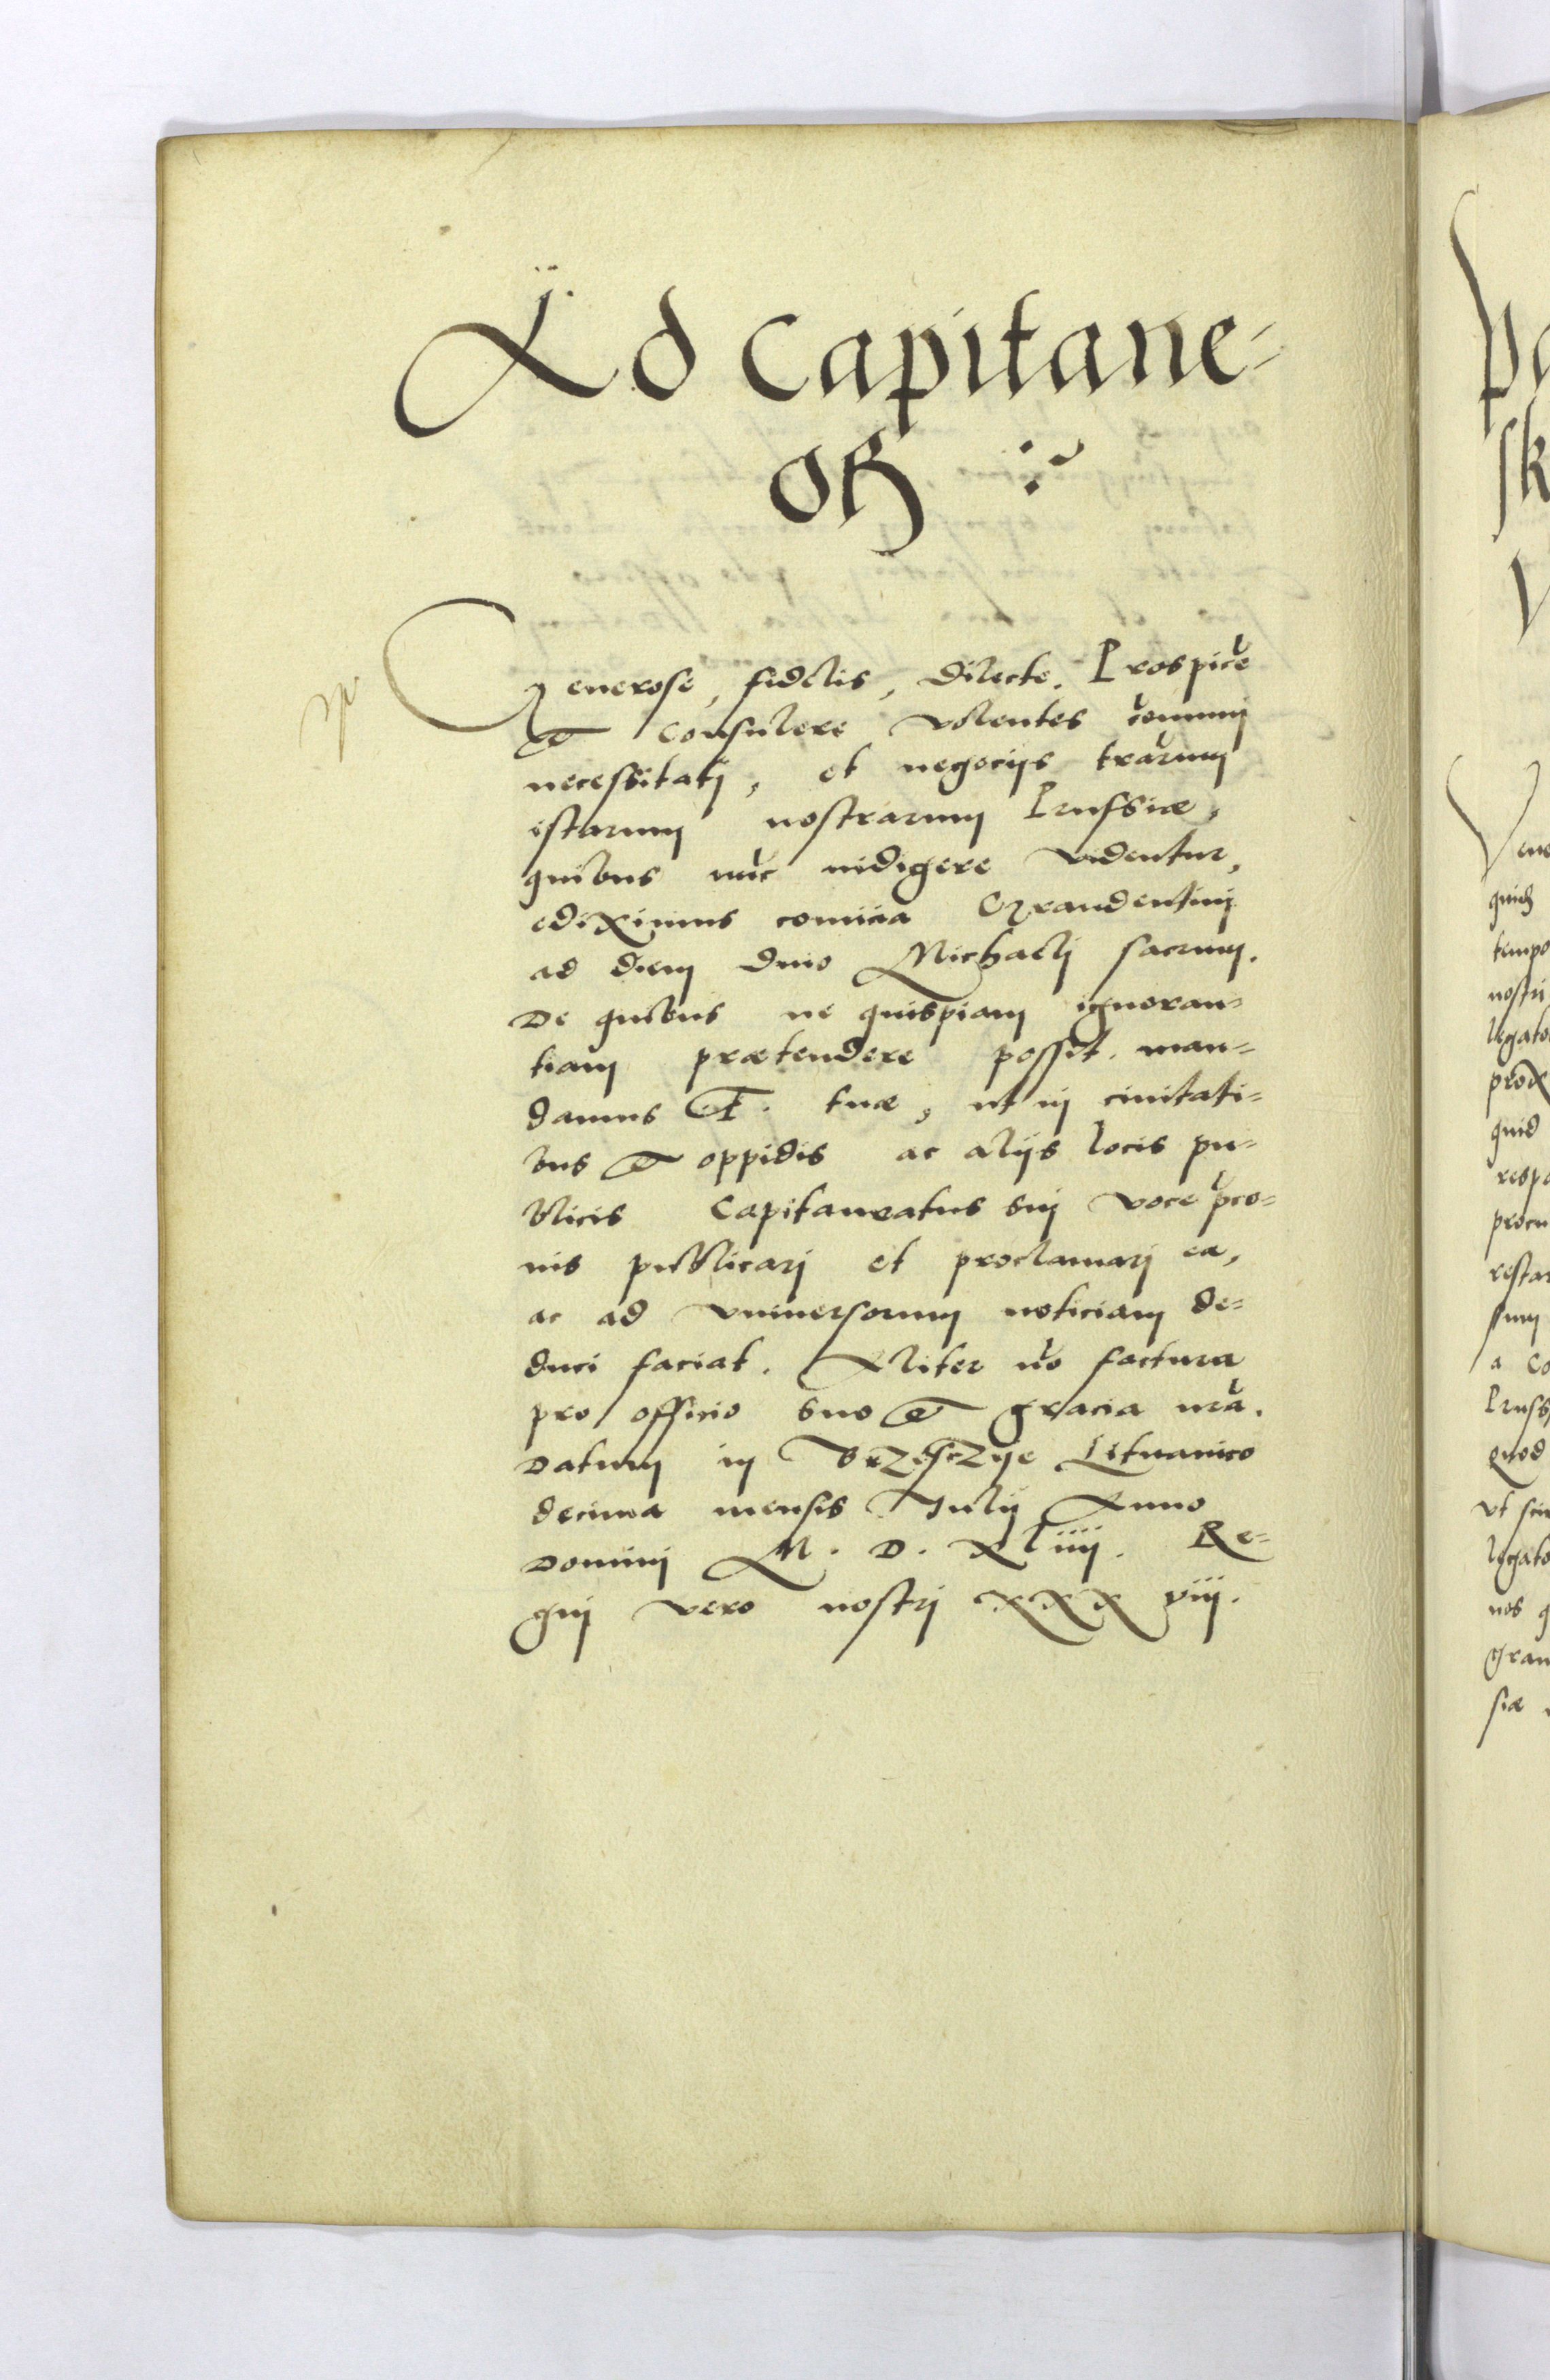 Ad Capitane-
os
Generose, fidelis, dilecte. Prospicẽ
et consulere volentes cõmuni
necessitati, et negocijs trãrum
istarum nostrarum Prussiae,
quibus nũc indigere videntur,
ediximus comitia Grandentini
ad diem divo Michaeli sacrum.
De quibus ne quispiam ignoran=
tiam praetendere possit. man=
damus F. tuae, ut in civitati=
bus et oppidis ac alijs locis pu=
blicis Capitaneatus sui voce p̃co=
nis publicari et proclamari ea,
ac ad universorum noticiam de=
duci faciat. Aliter nõ factura
pro officio suo et gracia nrã.
Datum in Brzesczye Lituanico
decima mensis Julij Anno
Domini M. D. XLiiij. Re=
gni vero nostri XXX viij.